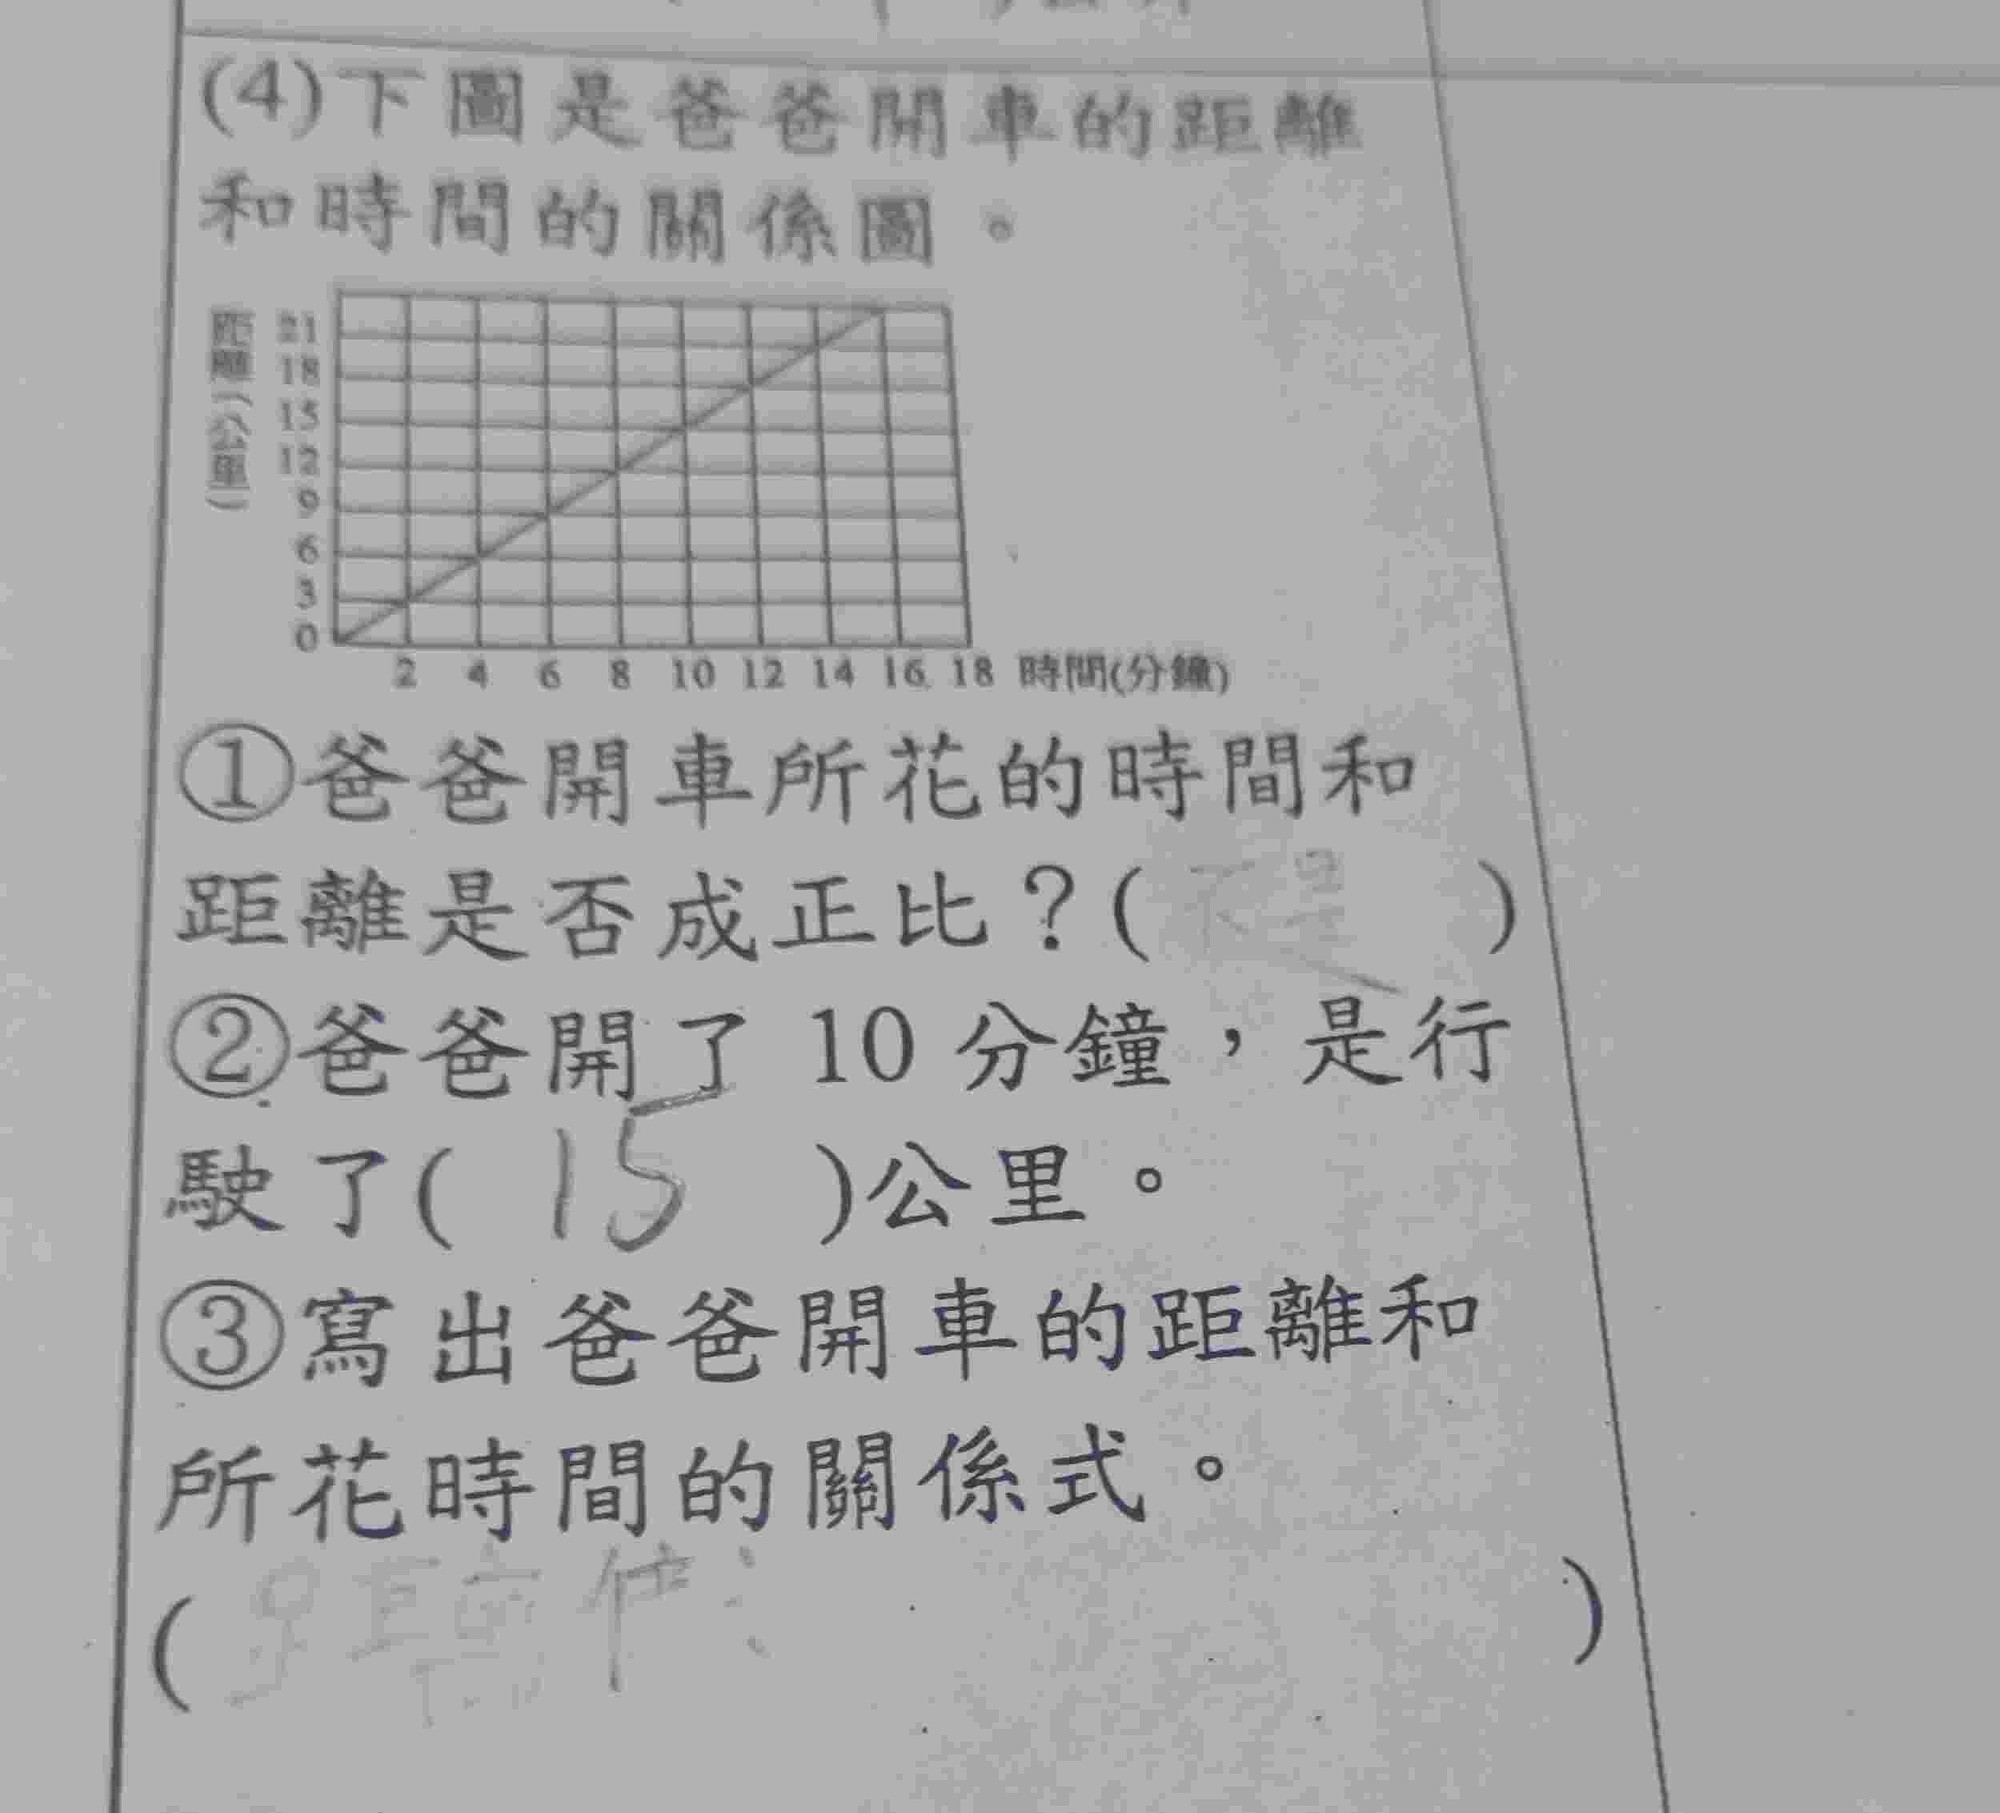 (4)下圖是爸爸開車的距離
和時間的關係圖。
距離(公里)
21
18
15
12
9
6
3
0
2 4 6 8 10 12 14 16 18 時間(分鐘)
①爸爸開車所花的時間和
距離是否成正比？(不是)
②爸爸開了 10 分鐘，是行
駛了( 15 )公里。
③寫出爸爸開車的距離和
所花時間的關係式。
( )